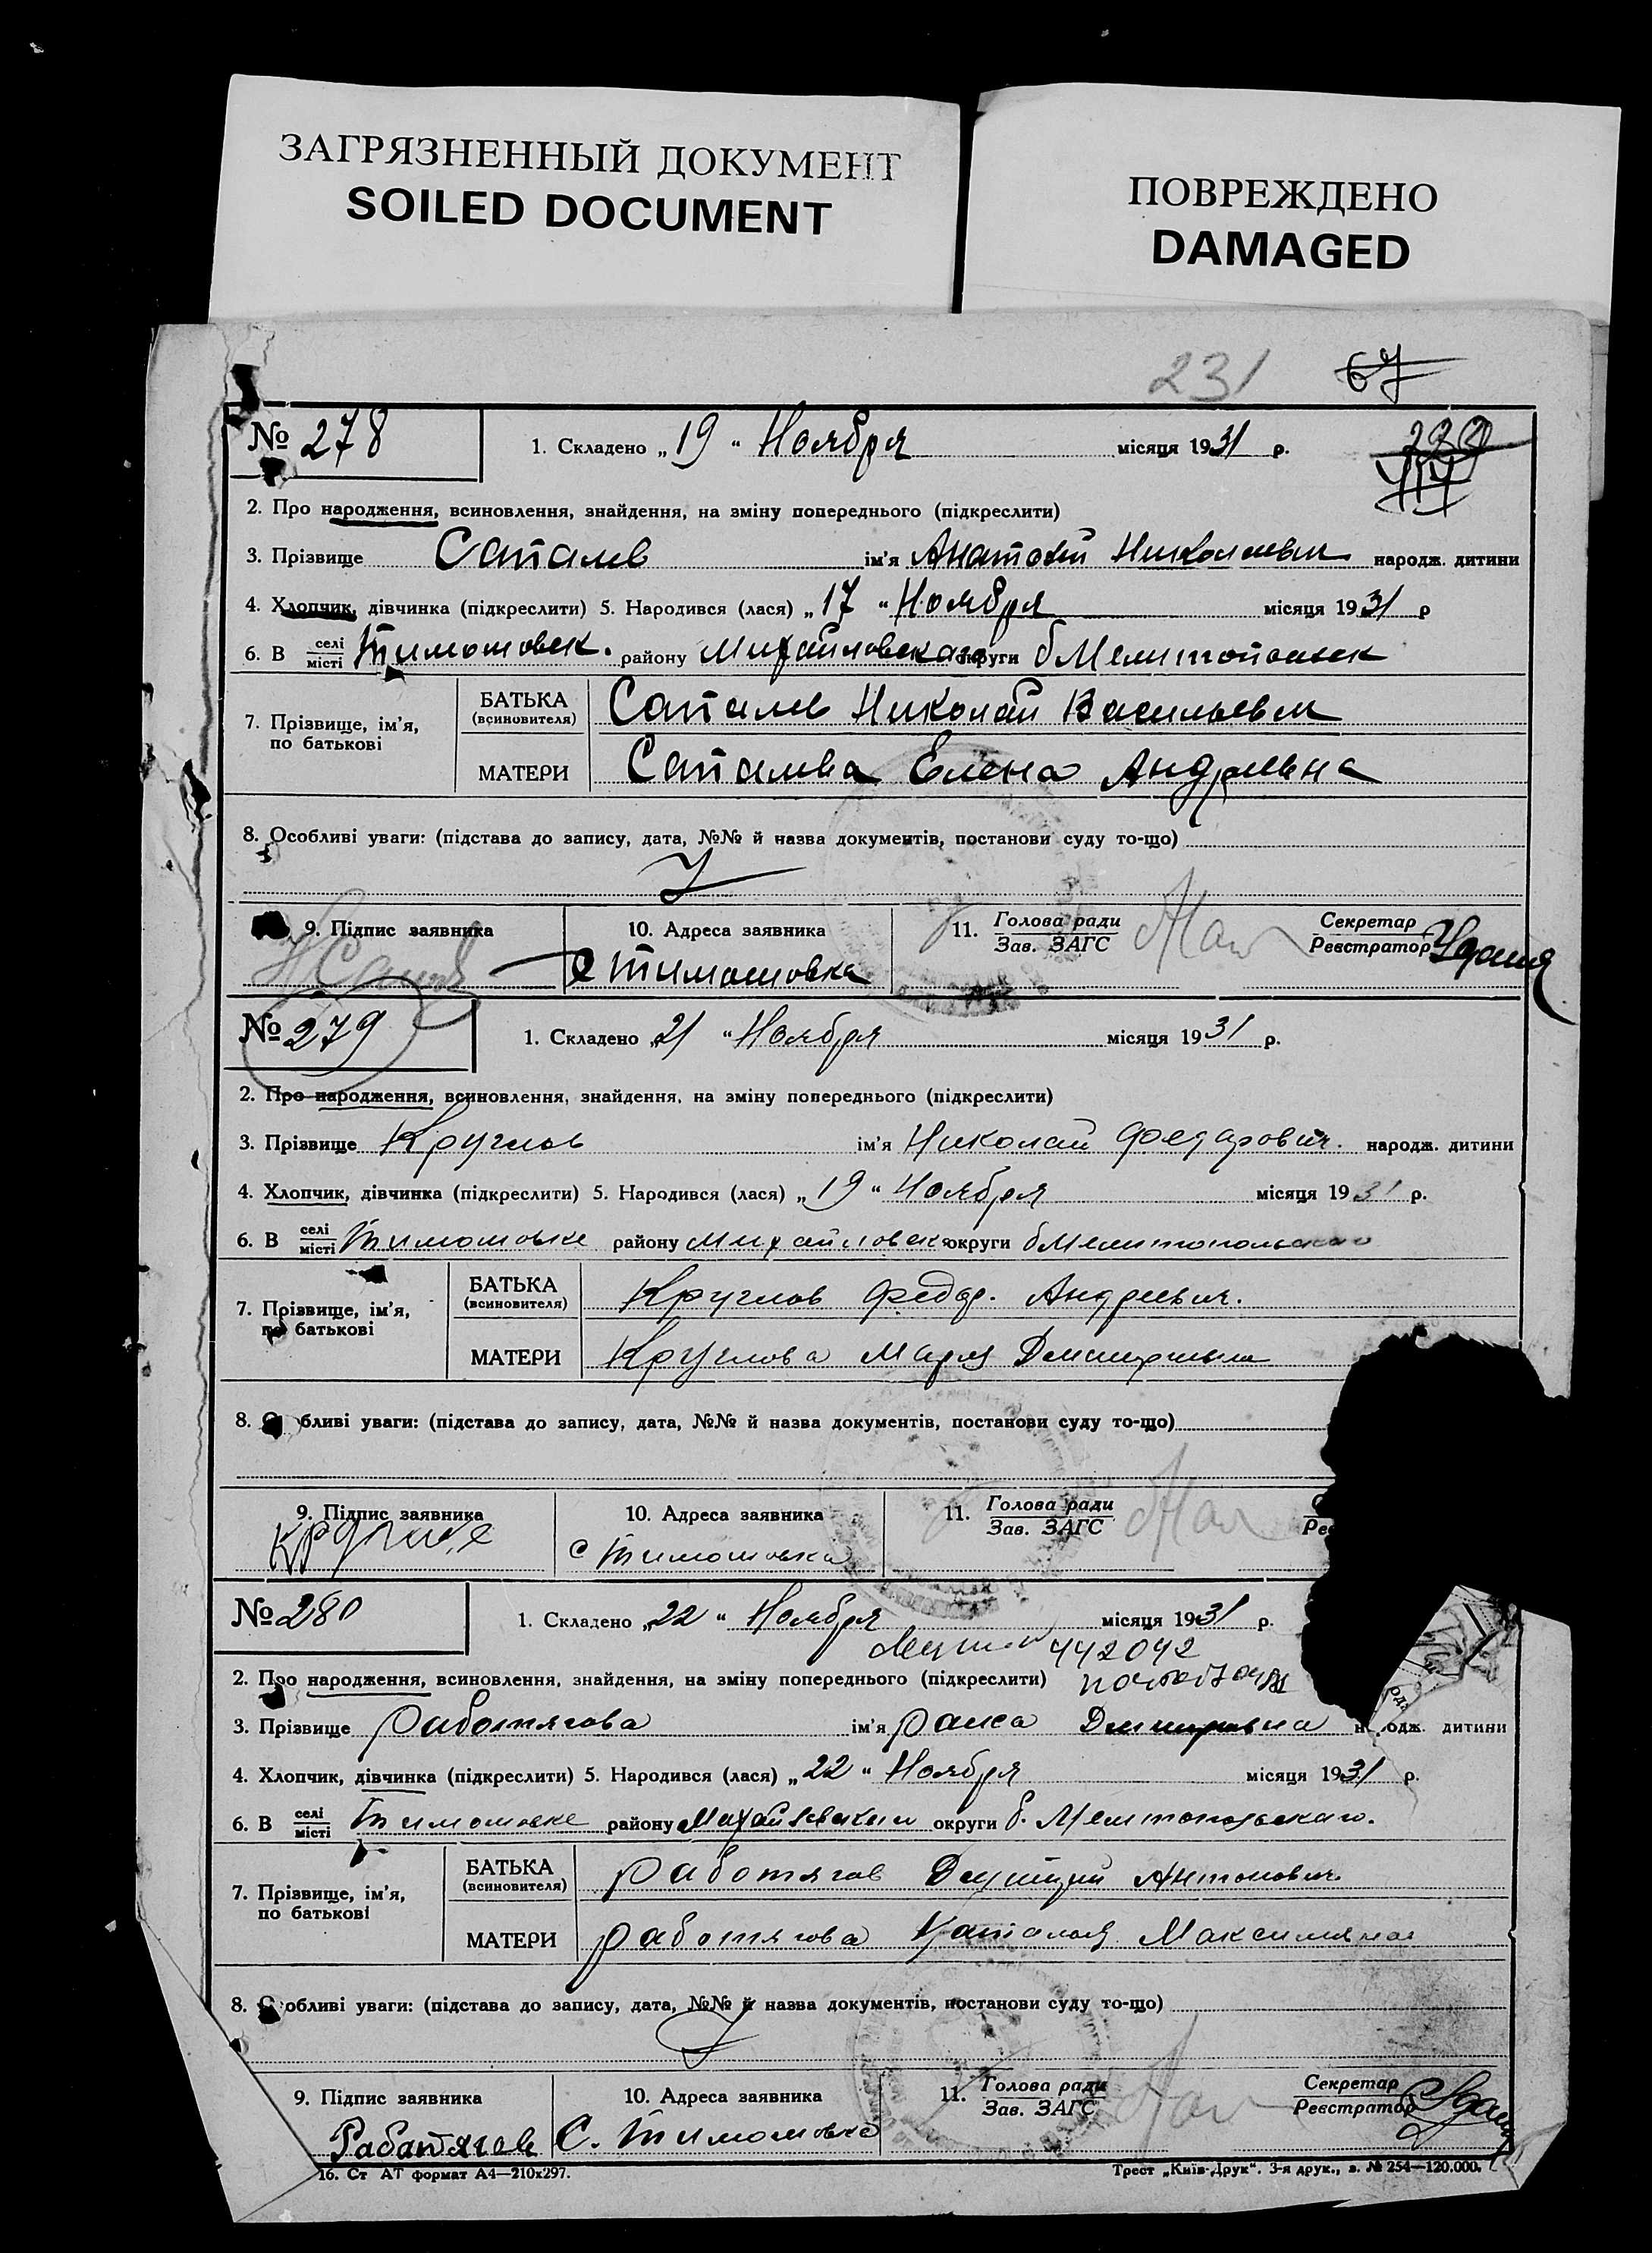 ЗАГРЯЗНЕННЫЙ ДОКУМЕНТ
SOILED DOCUMENT
ПОВРЕЖДЕНО
DAMAGED
231 67
№ 278 1. Складено „19“ Ноября місяця 1931 р.
2. Про народження, всиновлення, знайдення, на зміну попереднього (підкреслити)
3. Прізвище ім'я Анатолий Николаевич народж. дитини
4. Хлопчик, дівчинка (підкреслити) 5. Народився (лася) „17“ Ноября місяця 1931 р
6. В селі/місті Тимошовск. району Михайловского округи б Мелитопольск
7. Прізвище, ім'я, по батькові
БАТЬКА (всиновителя) Николай Васильевич
МАТЕРИ Елена Андреевна
8. Особливі уваги: (підстава до запису, дата, №№ й назва документів, постанови суду то-що)
9. Підпис заявника 10. Адреса заявника 11. Голова ради/Зав. ЗАГС Секретар/Реєстратор
с Тимошовка
№ 279 1. Складено „21“ Ноября місяця 1931 р.
2. Про народження, всиновлення, знайдення, на зміну попереднього (підкреслити)
3. Прізвище Круглов ім'я Николай Федорович. народж. дитини
4. Хлопчик, дівчинка (підкреслити) 5. Народився (лася) „19“ Ноября місяця 1931 р.
6. В селі/місті Тимошовке району Михайловск округи б Мелитопольского
7. Прізвище, ім'я, по батькові
БАТЬКА (всиновителя) Круглов Федор. Андреевич.
МАТЕРИ Круглова Мария Дмитриевна
8. бливі уваги: (підстава до запису, дата, №№ й назва документів, постанови суду то-що)
9. Підпис заявника 10. Адреса заявника 11. Голова ради/Зав. ЗАГС
с Тимошовка
№ 280 1. Складено „22“ Ноября місяця 1931 р.
442042
2. Про народження, всиновлення, знайдення, на зміну попереднього (підкреслити)
3. Прізвище Работягова ім'я Раиса Дмитровна народж. дитини
4. Хлопчик, дівчинка (підкреслити) 5. Народився (лася) „22“ Ноября місяця 1931 р.
6. В селі/місті Тимошовке району округи б. Мелитопольскаго.
7. Прізвище, ім'я, по батькові
БАТЬКА (всиновителя) Работягов Дмитрий Антонович.
МАТЕРИ Работягова Наталья Максимовна
8. Особливі уваги: (підстава до запису, дата, №№ й назва документів, постанови суду то-що)
9. Підпис заявника 10. Адреса заявника 11. Голова ради/Зав. ЗАГС Секретар/Реєстратор
Работягов С. Тимошовка
16. Ст АТ формат А4—210х297. Трест „Київ-Друк“. 3-я друк., з. № 254—120.000.